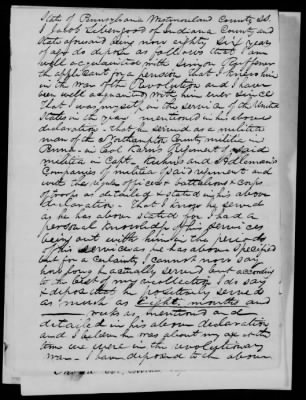 State of Pennsylvania Westmoreland County SS.
I Jacob Libengood of Indiana County and
State aforesaid being now eighty six years
of age do depose as follows that I am
well acquainted with Simon Ruffener
the applicant for a pension that I knew him
in the war of the Revolution and I have
been well acquainted with him ever since
that I was myself in the service of the United
States in the year mentioned in his above
declaration - that he served as a militia
man of the Northampton County militia in
Penna - in Col. Regiment of said
militia in Capt. and
Companies of militia of said regiment and
with the regular officers battalions & corps
of troops as detailed & stated in his above
declaration - That I know he served
as he has above stated for I had a
personal knowledge of his services
being out with him in the periods
of his service as he has above specified
but for a certainty I cannot now say
how long he actually served but according
to the best of my recollection I do say
& depose that he positively served
as much as Eight months and
weeks as mentioned and
detailed in his above declaration
and I believe he was about my age at the
time we were in the revolutionary
war - I have deposed to the above